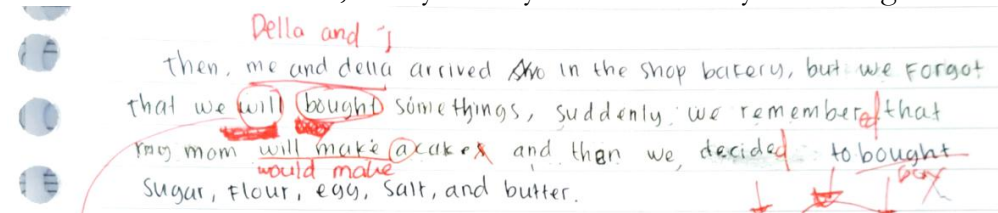 Della and I
Then, me and della arrived in the shop bakery, but we Forgot
that we will bought somethings, suddenly we remembered that
my mom will make a cakes and then we, decided to bought
would make buy
sugar, Flour, egg, salt, and butter.